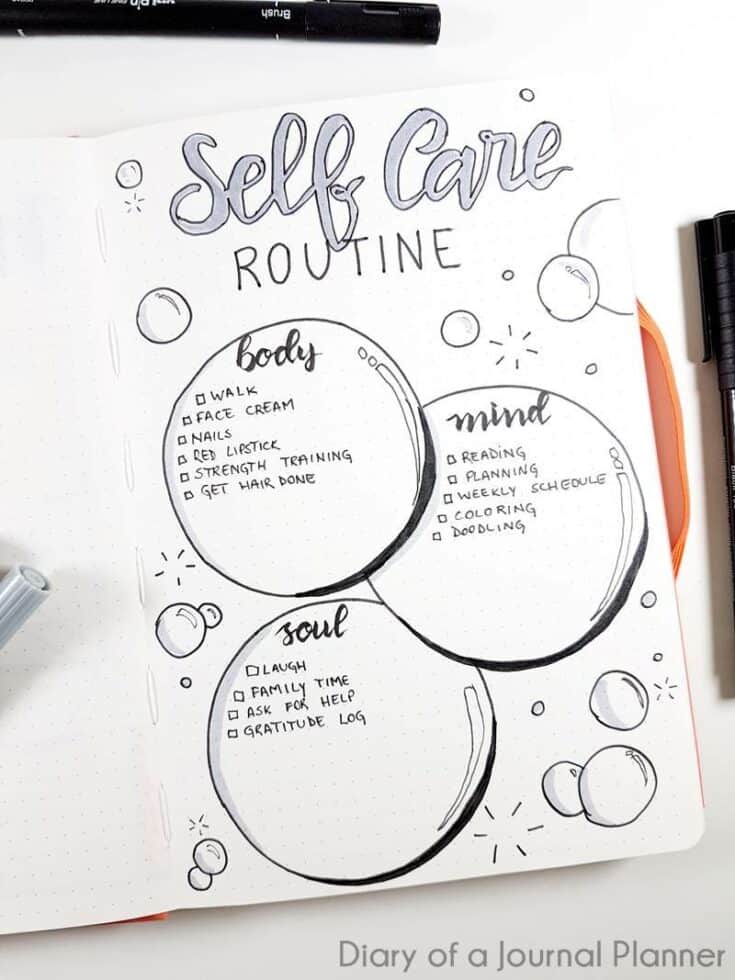 Brush
uni Pin
Self Care
ROUTINE
body
WALK
FACE CREAM
NAILS
RED LIPSTICK
STRENGTH TRAINING
GET HAIR DONE
mind
READING
PLANNING
WEEKLY SCHEDULE
COLORING
DOODLING
soul
LAUGH
FAMILY TIME
ASK FOR HELP
GRATITUDE LOG
Diary of a Journal Planner